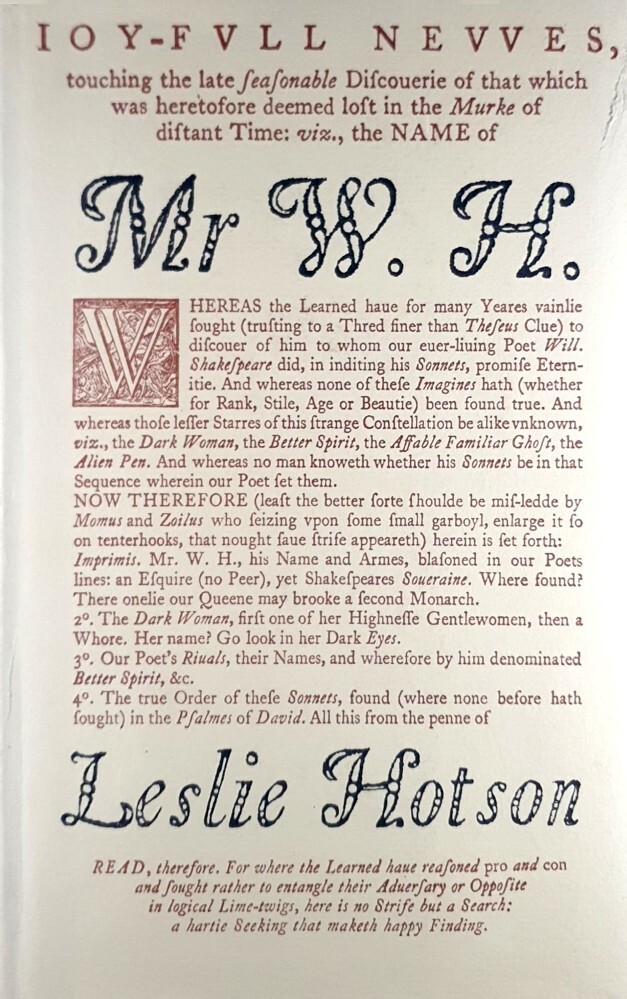 IOY-FVLL NEVVES,
touching the late ſeaſonable Diſcouerie of that which
was heretofore deemed loſt in the Murke of
diſtant Time: viz., the NAME of
Mr W. H.
WHEREAS the Learned haue for many Yeares vainlie
ſought (truſting to a Thred finer than Theſeus Clue) to
diſcouer of him to whom our euer-liuing Poet Will.
Shakeſpeare did, in inditing his Sonnets, promiſe Etern-
itie. And whereas none of theſe Imagines hath (whether
for Rank, Stile, Age or Beautie) been found true. And
whereas thoſe leſſer Starres of this ſtrange Conſtellation be alike vnknown,
viz., the Dark Woman, the Better Spirit, the Affable Familiar Ghoſt, the
Alien Pen. And whereas no man knoweth whether his Sonnets be in that
Sequence wherein our Poet ſet them.
NOW THEREFORE (leaſt the better ſorte ſhoulde be miſ-ledde by
Momus and Zoilus who ſeizing vpon ſome ſmall garboyl, enlarge it ſo
on tenterhooks, that nought ſaue ſtrife appeareth) herein is ſet forth:
Imprimis. Mr. W. H., his Name and Armes, blaſoned in our Poets
lines: an Eſquire (no Peer), yet Shakeſpeares Soueraine. Where found?
There onelie our Queene may brooke a ſecond Monarch.
2º. The Dark Woman, firſt one of her Highneſſe Gentlewomen, then a
Whore. Her name? Go look in her Dark Eyes.
3º. Our Poet's Riuals, their Names, and wherefore by him denominated
Better Spirit, &c.
4º. The true Order of theſe Sonnets, found (where none before hath
ſought) in the Pſalmes of David. All this from the penne of
Leslie Hotson
READ, therefore. For where the Learned haue reaſoned pro and con
and ſought rather to entangle their Aduerſary or Oppoſite
in logical Lime-twigs, here is no Strife but a Search:
a hartie Seeking that maketh happy Finding.